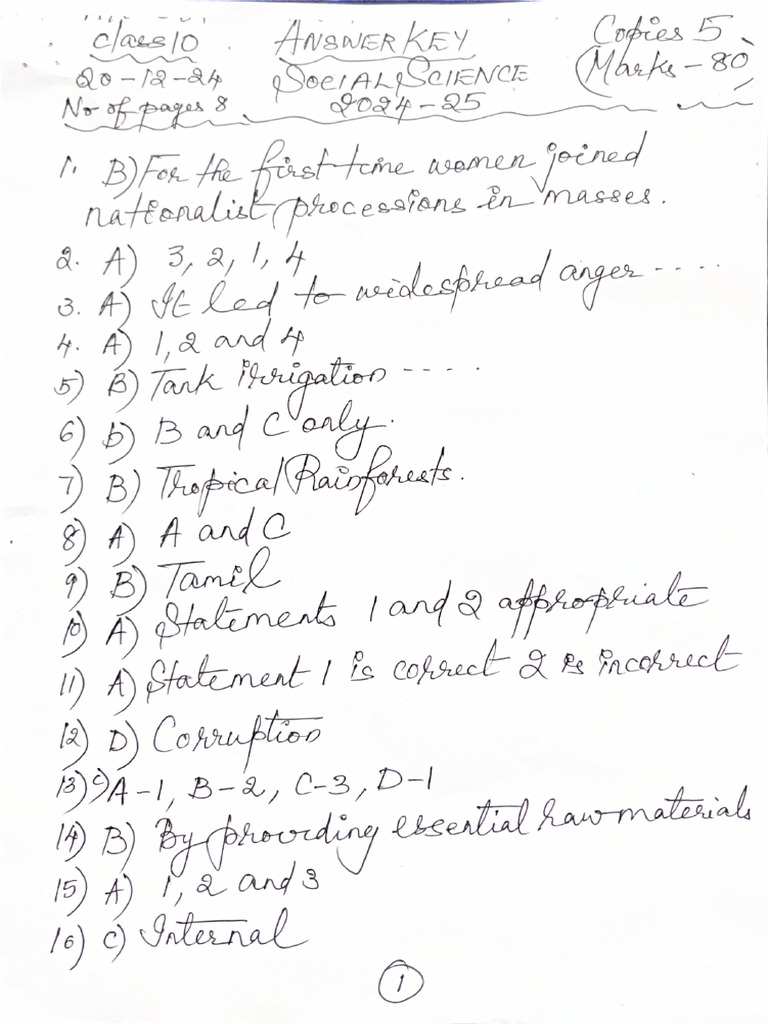 Class 10 ANSWER KEY Copies 5
20-12-24 SOCIAL SCIENCE Marks - 80
No of pages 8 2024-25
1. B) For the first time women joined
nationalist processions in masses.
2. A) 3, 2, 1, 4
3. A) It led to widespread anger .....
4. A) 1, 2 and 4
5) B) Tank irrigation ----.
6) b) B and C only.
7) B) Tropical Rainforests.
8) A) A and C
9) B) Tamil
10) A) Statements 1 and 2 appropriate
11) A) Statement 1 is correct 2 is incorrect
12) D) Corruption
13) c) A-1, B-2, C-3, D-1
14) B) By providing essential raw materials
15) A) 1, 2 and 3
16) C) Internal
1